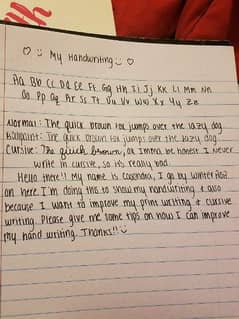 ♡ ☺ My Handwriting ☺ ♡
Aa Bb Cc Dd Ee Ff Gg Hh Ii Jj Kk Ll Mm Nn
Oo Pp Qq Rr Ss Tt Uu Vv Ww Xx Yy Zz
Normal: The quick brown fox jumps over the lazy dog.
Ballpoint: The quick brown fox jumps over the lazy dog.
Cursive: The quick brown, ok Imma be honest I never
write in cursive, so it's really bad.
Hello there!! My name is I go by
on here I'm doing this to show my handwriting & also
because I want to improve my print writing & cursive
writing. Please give me some tips on how I can improve
my hand writing. Thanks!! ☺